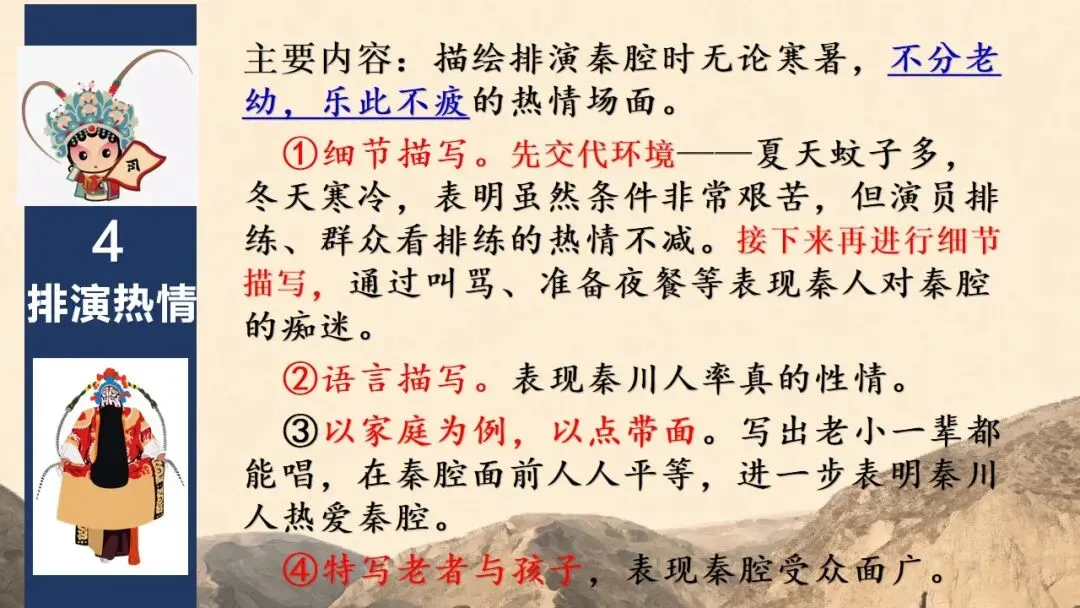 4
排演热情
主要内容：描绘排演秦腔时无论寒暑，不分老
幼，乐此不疲的热情场面。
①细节描写。先交代环境——夏天蚊子多，
冬天寒冷，表明虽然条件非常艰苦，但演员排
练、群众看排练的热情不减。接下来再进行细节
描写，通过叫骂、准备夜餐等表现秦人对秦腔
的痴迷。
②语言描写。表现秦川人率真的性情。
③以家庭为例，以点带面。写出老小一辈都
能唱，在秦腔面前人人平等，进一步表明秦川
人热爱秦腔。
④特写老者与孩子，表现秦腔受众面广。